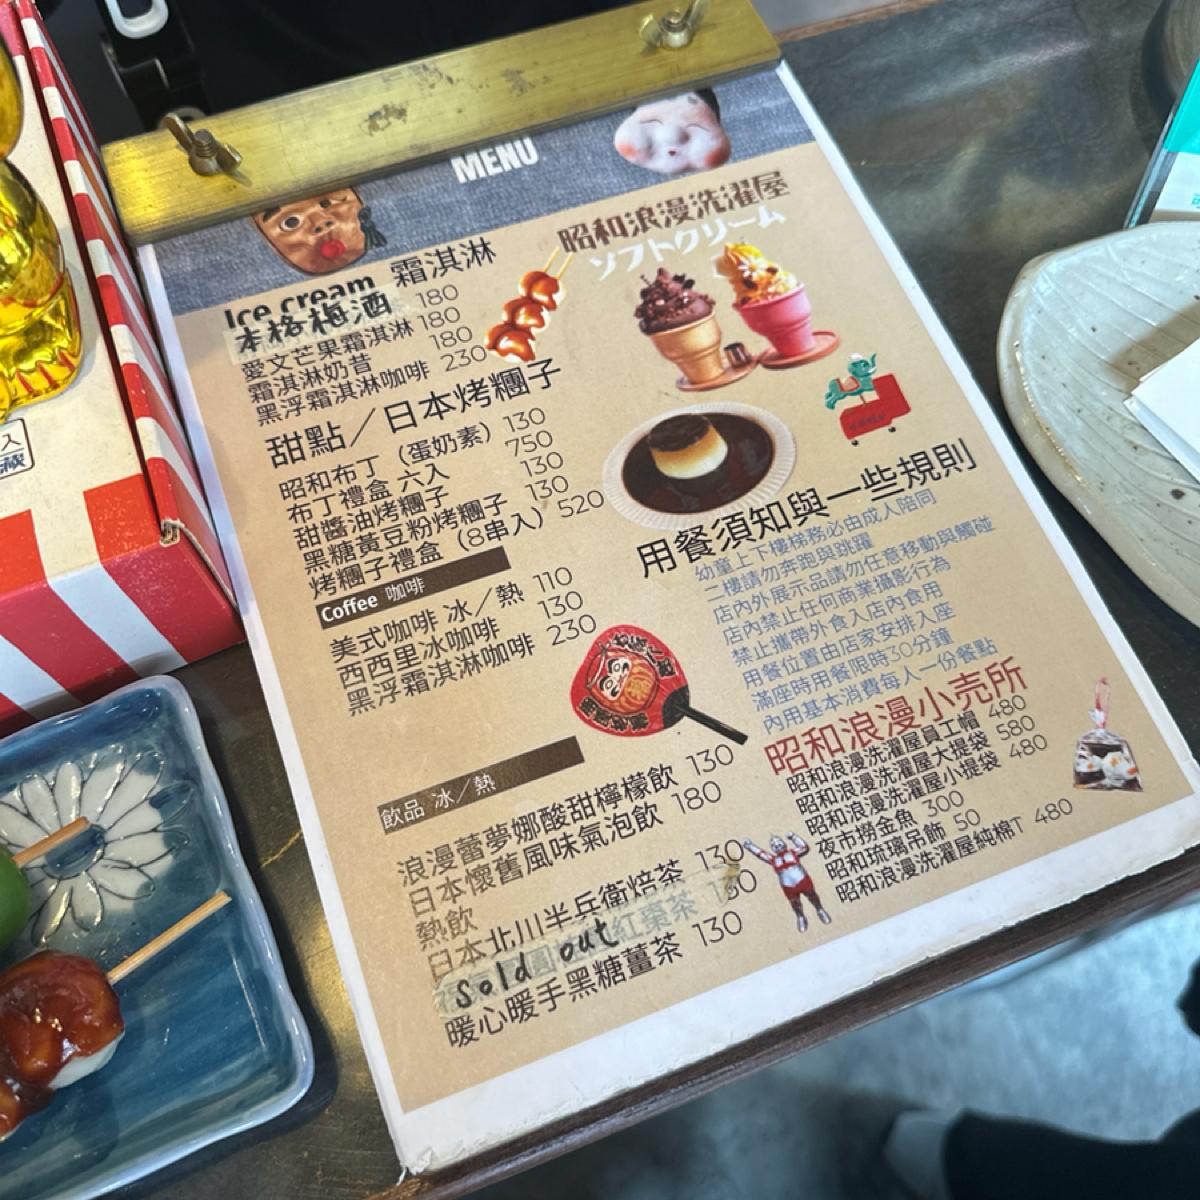 MENU
昭和浪漫洗濯屋
ソフトクリーム
Ice cream 霜淇淋
本格梅酒 180
愛文芒果霜淇淋 180
霜淇淋奶昔 180
黑浮霜淇淋咖啡 230
甜點／日本烤糰子
昭和布丁（蛋奶素）130
布丁禮盒 六入 750
甜醬油烤糰子 130
黑糖黃豆粉烤糰子 130
烤糰子禮盒（8串入）520
Coffee 咖啡
美式咖啡 冰／熱 110
西西里冰咖啡 130
黑浮霜淇淋咖啡 230
飲品 冰／熱
浪漫蕾夢娜酸甜檸檬飲 130
日本懷舊風味氣泡飲 180
熱飲
日本北川半兵衛焙茶 130
圓紅棗茶
sold out
暖心暖手黑糖薑茶 130
用餐須知與一些規則
幼童上下樓梯務必由成人陪同
二樓請勿奔跑與跳躍
店內外展示品請勿任意移動與觸碰
店內禁止任何商業攝影行為
禁止攜帶外食入店內食用
用餐位置由店家安排入座
滿座時用餐限時30分鐘
內用基本消費每人一份餐點
昭和浪漫小売所
昭和浪漫洗濯屋員工帽 480
昭和浪漫洗濯屋大提袋 580
昭和浪漫洗濯屋小提袋 480
夜市撈金魚 300
昭和琉璃吊飾 50
昭和浪漫洗濯屋純棉T 480
入
藏